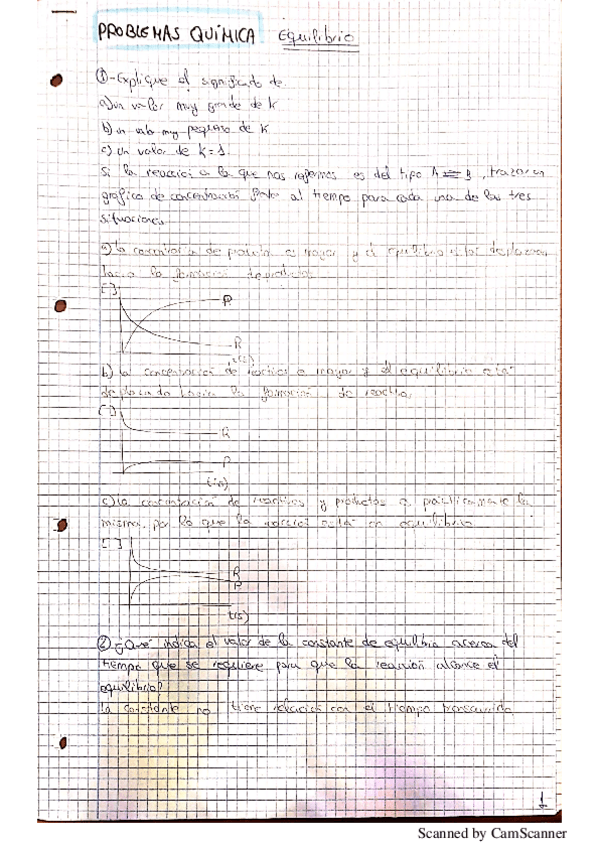 PROBLEMAS QUÍMICA Equilibrio
①-Explique el significado de
a) un valor muy grande de k
b) un valor muy pequeño de k
c) Un valor de k=1.
Si la reacción a la que nos referimos es del tipo A ⇌ B, trazar un
gráfico de concentración frente al tiempo para cada una de las tres
situaciones
a) la concentración de producto es mayor y el equilibrio desplazado
hacia la formación de productos
[ ]
P
R
t(s)
b) la concentración de reactivos es mayor y el equilibrio está
desplazado hacia la formación de reactivo
[ ]
R
P
c) la concentración de reactivos y productos es prácticamente la
misma, por lo que la reacción está en equilibrio
[ ]
R
P
t(s)
② ¿Qué indica el valor de la constante de equilibrio acerca del
tiempo que se requiere para que la reacción alcance el
equilibrio?
la constante no tiene relación con el tiempo transcurrido
1
Scanned by CamScanner